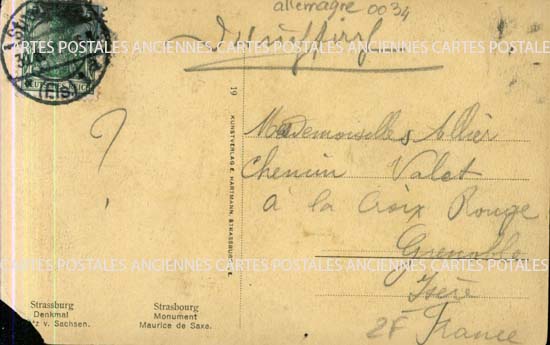 allemagne 0034
CARTES POSTALES ANCIENNES CARTES POSTALES ANCIENNES CARTES POSTALES
(Els)
19
KUNSTVERLAG E. HARTMANN, STRASSBURG
?
Mademoiselles Allier
Chemin Valet
à la Croix Rouge
Grenoble
Isère
France
2F
CARTES POSTALES ANCIENNES CARTES POSTALES ANCIENNES CARTES POSTALES
Strassburg
Denkmal
v. Sachsen.
Strasbourg
Monument
Maurice de Saxe.